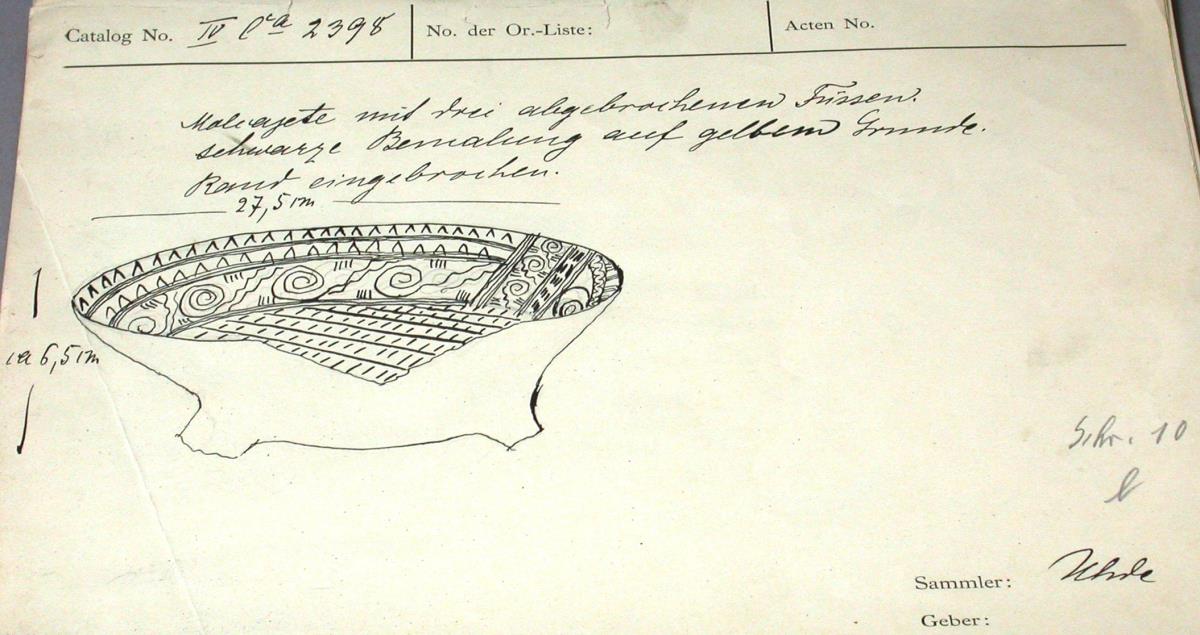 Catalog No. IV Ca 2398
No. der Or.-Liste:
Acten No.
Molcajete mit drei abgebrochenen Füssen.
schwarze Bemalung auf gelbem Grunde.
Rand eingebrochen.
27,5 cm
ca 6,5 cm
Schr. 10
Sammler: Uhde
Geber: